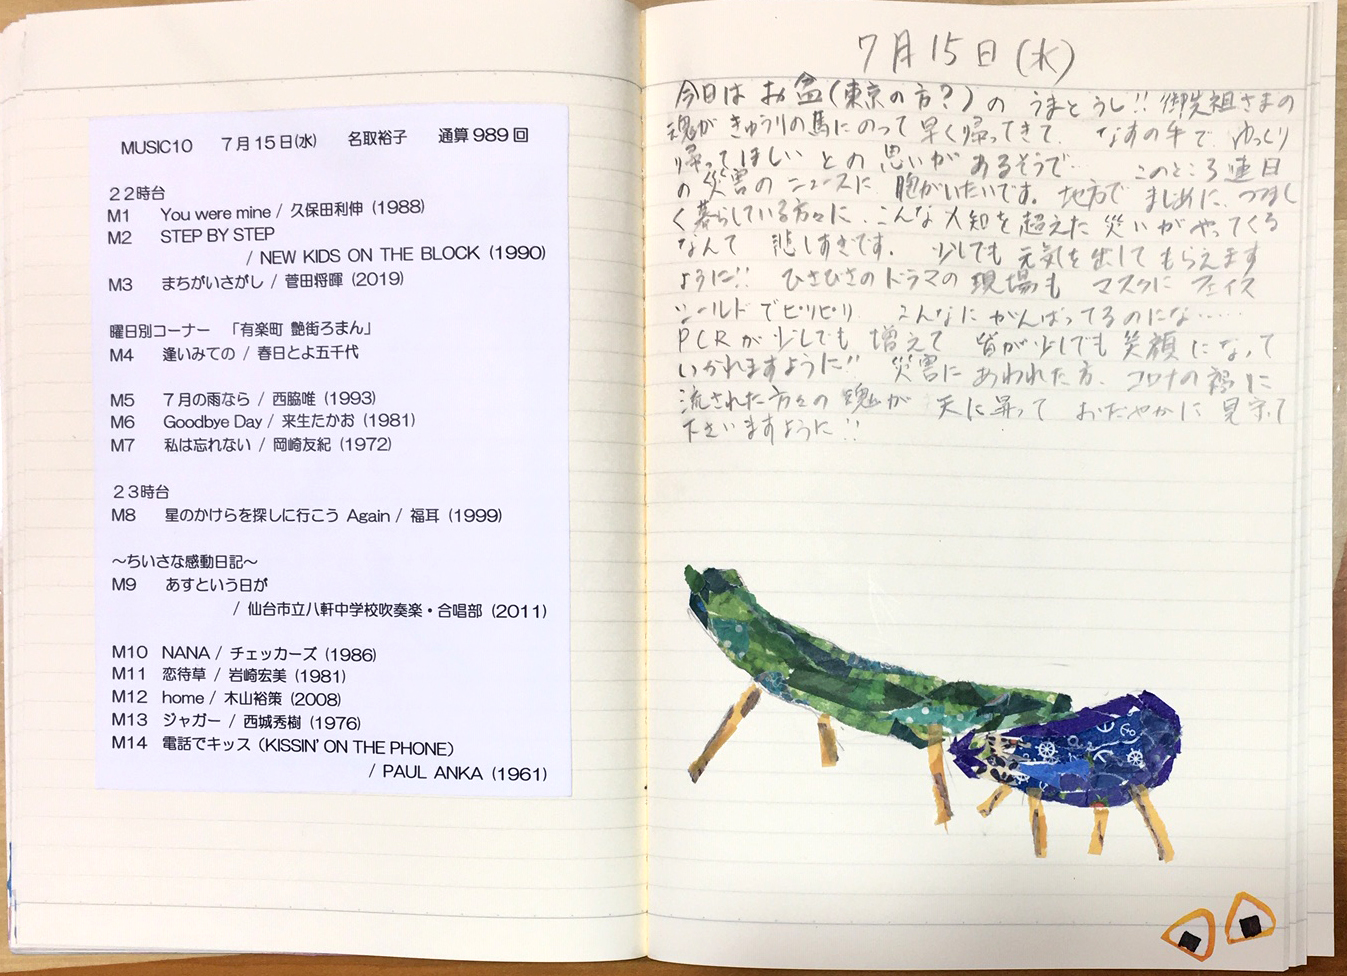 MUSIC10 7月15日(水) 名取裕子 通算989回
22時台
M1 You were mine / 久保田利伸 (1988)
M2 STEP BY STEP
/ NEW KIDS ON THE BLOCK (1990)
M3 まちがいさがし / 菅田将暉 (2019)
曜日別コーナー 「有楽町 艶街ろまん」
M4 逢いみての / 春日とよ五千代
M5 7月の雨なら / 西脇唯 (1993)
M6 Goodbye Day / 来生たかお (1981)
M7 私は忘れない / 岡崎友紀 (1972)
23時台
M8 星のかけらを探しに行こう Again / 福耳 (1999)
～ちいさな感動日記～
M9 あすという日が
/ 仙台市立八軒中学校吹奏楽・合唱部 (2011)
M10 NANA / チェッカーズ (1986)
M11 恋待草 / 岩崎宏美 (1981)
M12 home / 木山裕策 (2008)
M13 ジャガー / 西城秀樹 (1976)
M14 電話でキッス (KISSIN' ON THE PHONE)
/ PAUL ANKA (1961)
7月15日(水)
今日はお盆(東京の方?)の うまとうし!! 御先祖さまの
魂が きゅうりの馬にのって 早く帰ってきて、 なすの牛で ゆっくり
帰ってほしい との 思いが あるそうで… このところ連日
の 災害の ニュースに 胸がいたいです。地方で まじめに、つまし
く暮らしている方々に、こんな 人知を超えた 災いが やってくる
なんて 悲しすぎです。 少しでも 元気を出して もらえます
ように!! ひさびさのドラマの 現場も マスクに フェイス
シールド でピリピリ こんなに がんばってるのにな……
PCRが 少しでも 増えて 皆が少しでも 笑顔 になって
いかれますように!! 災害に あわれた方、 コロナの禍に
流された方々の 魂が 天に昇って おだやかに 見守って
下さいますように!!